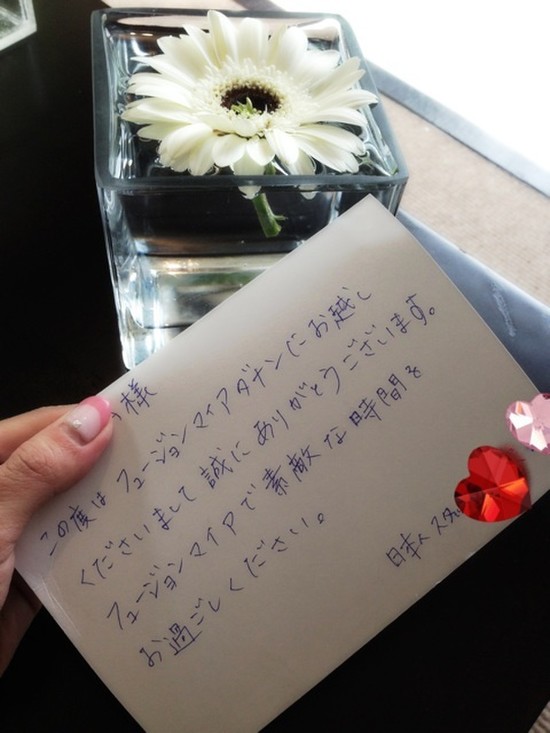 様
この度は フュージョンマイアダナンにお越し
くださいまして 誠に ありがとうございます。
フュージョンマイアで素敵な時間を
お過ごしください。
日本人スタ